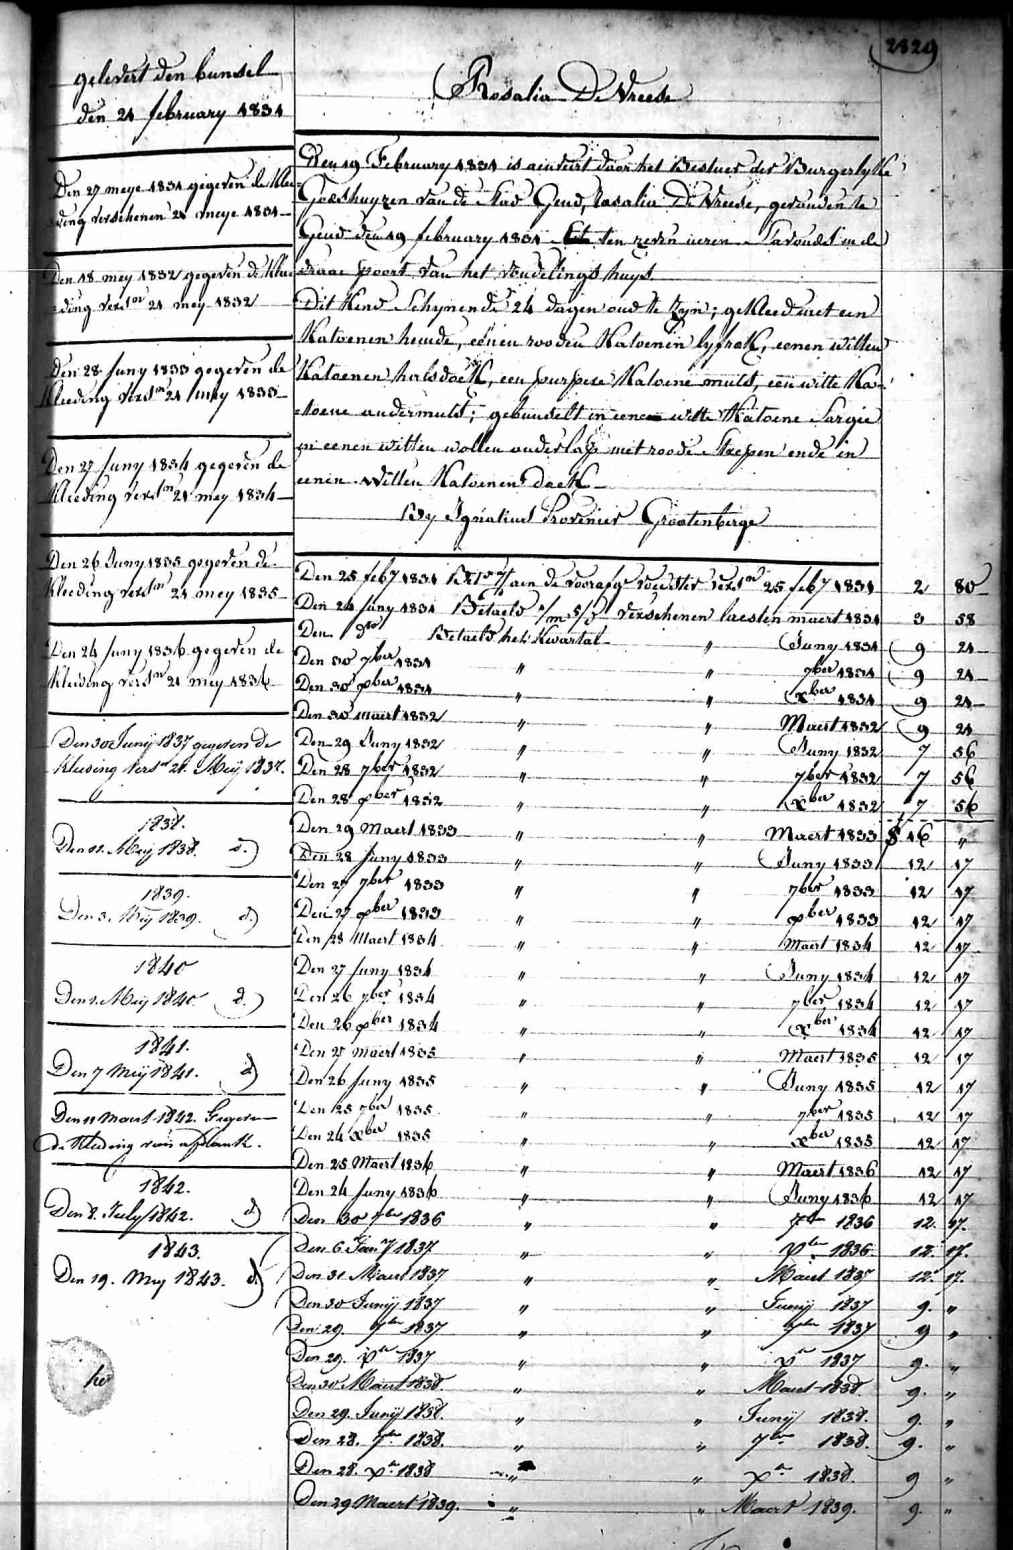 2829
Rosalia De Vreese
gelevert den bunsel
den 21 february 1831
Den 27 meye 1831 gegeven de Klee-
ding verschenen 21 meye 1831
Den 18 mey 1832 gegeven de Klee
ding versen 21 mey 1832
Den 28 Juny 1833 gegeven de
Kleeding versen 21 mey 1833
Den 27 Juny 1834 gegeven de
Kleeding versen 21 mey 1834
Den 26 Juny 1835 gegeven de
Kleeding versen 21 mey 1835
Den 24 Juny 1836 gegeven de
Kleeding versen 21 mey 1836
Den 30 Junij 1837 gegeven de
Kleeding vers 21 Meij 1837.
1838.
Den 11. Meij 1838. d.)
1839.
Den 3. Meij 1839. d.)
1840
Den 1. Meij 1840 d.)
1841.
Den 7 Meij 1841. d)
Den 11 Maert 1842. Gegeven
de Kleding van
1842.
Den 8. July 1842. d)
1843.
Den 19. Mey 1843. d.)
Den 19 February 1831 is aenveert door het Bestuer der Burgerlyke
Godshuyzen van de Stad Gend, Rosalia De Vreese, gevonden te
Gend den 19 february 1831 ten zeven ueren s'avonds in de
draae poort van het vondelings huys
Dit Kind schynende 24 dagen oud te zyn; gekleed met een
Katoenen hemde, eenen rooden Katoenen lyfrok, eenen witten
Katoenen halsdoek, een purpere Katoene muts, een witte Ka-
toene ondermuts; gebunselt in eene witte Katoene Sargie
in eenen witten wollen onderlap met roode Strepen ende in
eenen witten Katoenen doek
By Ignatius Provenier Grootenberge
Den 25 feby 1831 aen de voorafge voedster versen 25 feby 1831 2 80
Den 24 Juny 1831 Betaeld 1/m 5/d verschenen laesten maert 1831 3 58
Den do Betaeld het Kwartal " Juny 1831 9 24
Den 30 7ber 1831 " " 7ber 1831 9 24
Den 30 xber 1831 " " xber 1831 9 24
Den 30 maert 1832 " " Maert 1832 9 24
Den 29 Juny 1832 " " Juny 1832 7 56
Den 28 7ber 1832 " " 7ber 1832 7 56
Den 28 xber 1832 " " xber 1832 7 56
Den 29 Maert 1833 " " Maert 1833 16 "
Den 28 Juny 1833 " " Juny 1833 12 17
Den 27 7ber 1833 " " 7ber 1833 12 17
Den 27 xber 1833 " " xber 1833 12 17
Den 28 Maert 1834 " " Maert 1834 12 17
Den 27 Juny 1834 " " Juny 1834 12 17
Den 26 7ber 1834 " " 7ber 1834 12 17
Den 26 xber 1834 " " xber 1834 12 17
Den 27 Maert 1835 " " Maert 1835 12 17
Den 26 Juny 1835 " " Juny 1835 12 17
Den 25 7ber 1835 " " 7ber 1835 12 17
Den 24 xber 1835 " " xber 1835 12 17
Den 25 Maert 1836 " " Maert 1836 12 17
Den 24 Juny 1836 " " Juny 1836 12 17
Den 30 7ber 1836 " " 7ber 1836 12. 17.
Den 6 Jany 1837 " " xber 1836 12. 17.
Den 31 Maert 1837 " " Maert 1837 12. 17.
Den 30 Junij 1837 " " Junij 1837 9. "
Den 29. 7ber 1837 " " 7ber 1837 9 "
Den 29. xr 1837 " " xr 1837 9. "
Den 30 Maert 1838. " " Maert 1838. 9. "
Den 29. Junij 1838. " " Junij 1838. 9. "
Den 28. 7r 1838. " " 7r 1838. 9. "
Den 28. xr 1838 " " xr 1838. 9 "
Den 29 Maert 1839. " " Maert 1839. 9. "